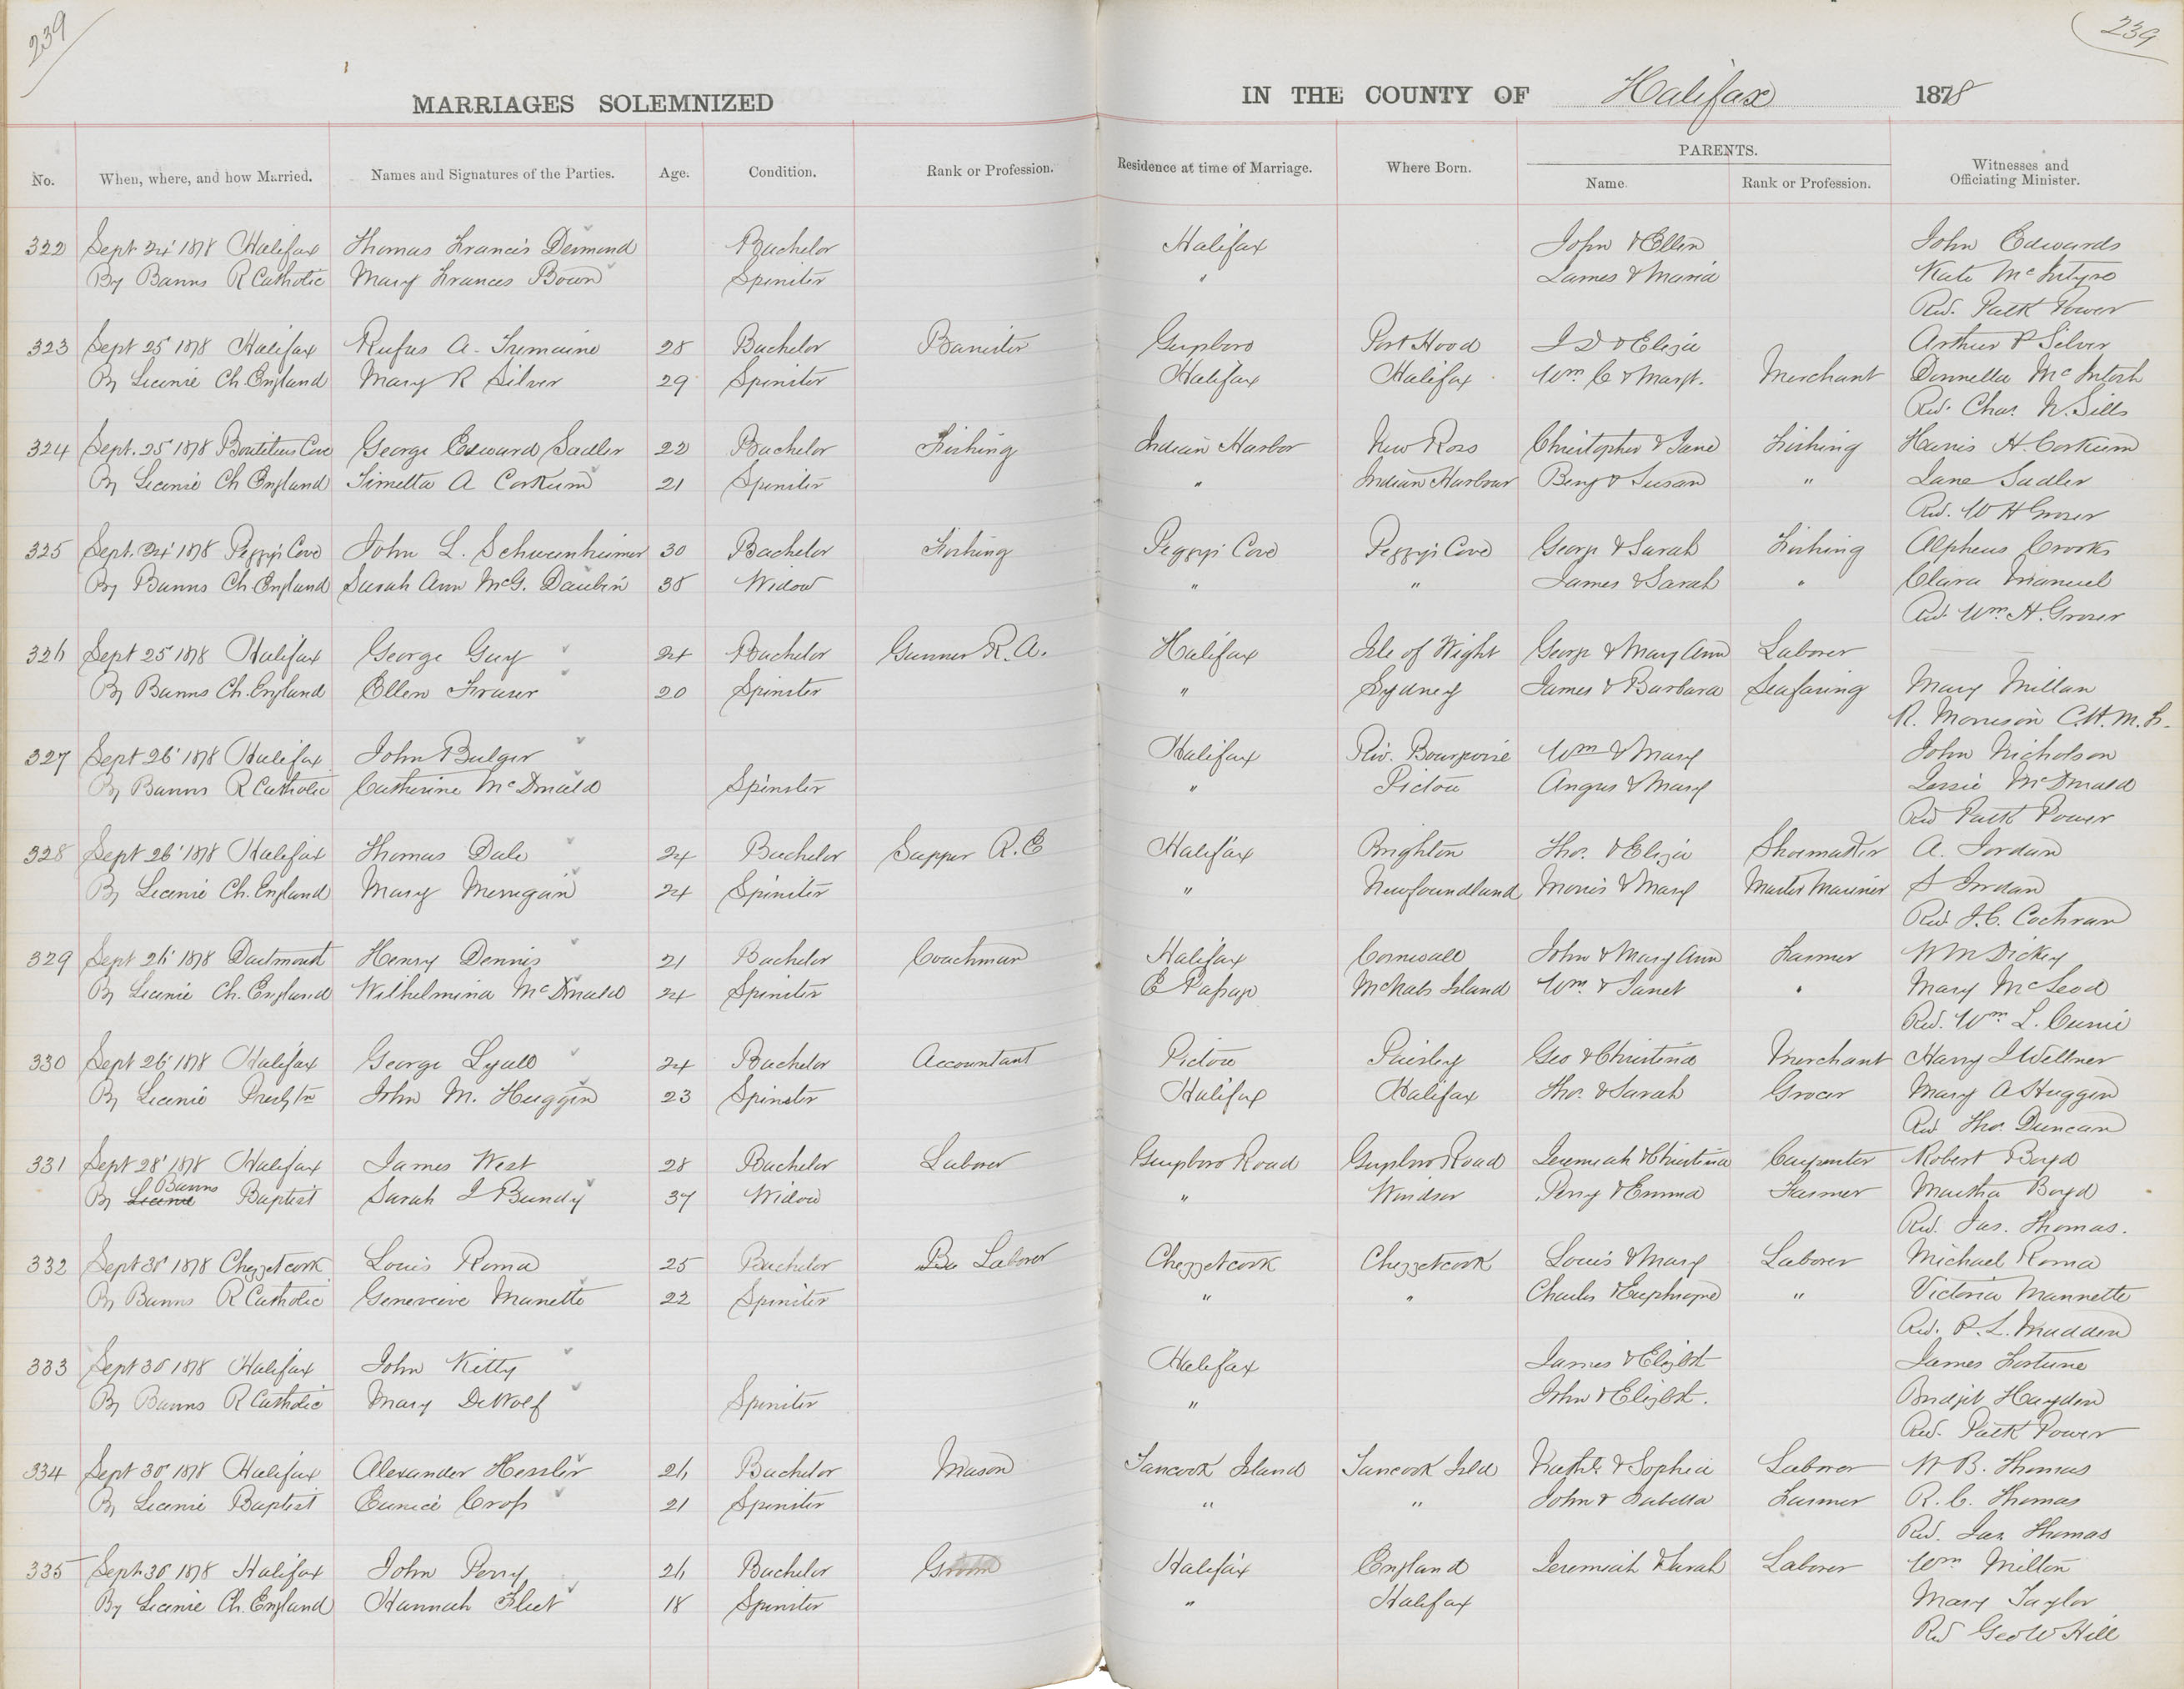 239
239
MARRIAGES SOLEMNIZED IN THE COUNTY OF Halifax 1878
No. When, where, and how Married. Names and Signatures of the Parties. Age. Condition. Rank or Profession. Residence at time of Marriage. Where Born. PARENTS. Name. Rank or Profession. Witnesses and Officiating Minister.
322 Sept 24' 1878 Halifax Thomas Francis Desmond Bachelor Halifax John & Ellen John Edwards
By Banns R Catholic Mary Frances Bown Spinster " James & Maria Kate McIntyre
Rev. Patk Power
323 Sept 25' 1878 Halifax Rufus A. Tremaine 28 Bachelor Barrister Guysboro Port Hood I D & Eliza Arthur P Silver
By License Ch. England Mary R Silver 29 Spinster Halifax Halifax Wm C & Margt. Merchant Donnella McIntosh
Rev. Chas. N. Sills
324 Sept. 25' 1878 Boutiliers Cove George Edward Sadler 22 Bachelor Fishing Indian Harbor New Ross Christopher & Jane Fishing Harris H. Corkum
By License Ch England Simetta A Corkum 21 Spinster " Indian Harbour Benj & Susan " Jane Sadler
Rev. W H Groser
325 Sept. 24' 1878 Peggy's Cove John L. Schwenheimer 30 Bachelor Fishing Peggy's Cove Peggy's Cove George & Sarah Fishing Alpheus Crooks
By Banns Ch. England Sarah Ann McG. Daubin 38 Widow " " James & Sarah " Clara Manuel
Rev. Wm. H. Groser
326 Sept 25' 1878 Halifax George Guy 24 Bachelor Gunner R.A. Halifax Isle of Wight George & Mary Ann Laborer
By Banns Ch. England Ellen Fraser 20 Spinster " Sydney James & Barbara Seafaring Mary Millan
R. Morrison C.H.M.F.
327 Sept 26' 1878 Halifax John Bulger Halifax Riv. Bourgeoise Wm & Mary John Nicholson
By Banns R Catholic Catherine McDonald Spinster " Pictou Angus & Mary Jessie McDonald
Rev Patk Power
328 Sept 26' 1878 Halifax Thomas Dale 24 Bachelor Sapper R.E Halifax Brighton Thos. & Eliza Shoemaker A. Jordan
By License Ch. England Mary Merrigan 24 Spinster " Newfoundland Morris & Mary Master Mariner S Jordan
Rev. J. C. Cochran
329 Sept 26' 1878 Dartmouth Henry Dennis 21 Bachelor Coachman Halifax Cornwall John & Mary Ann Farmer W M Dickey
By License Ch. England Wilhelmina McDonald 24 Spinster E Passage McNabs Island Wm. & Janet " Mary McLeod
Rev. Wm L. Currie
330 Sept 26' 1878 Halifax George Lyall 24 Bachelor Accountant Pictou Paisley Geo & Christina Merchant Harry J Wellner
By License Presbytn John M. Huggin 23 Spinster Halifax Halifax Thos. & Sarah Grocer Mary A Huggin
Rev Thos. Duncan
331 Sept 28' 1878 Halifax James West 28 Bachelor Laborer Guysboro Road Guysboro Road Jeremiah & Christina Carpenter Robert Boyd
By License Banns Baptist Sarah J Bundy 37 Widow " Windsor Perry & Emma Farmer Martha Boyd
Rev. Jas. Thomas.
332 Sept 30' 1878 Chezzetcook Louis Roma 25 Bachelor Ba Laborer Chezzetcook Chezzetcook Louis & Mary Laborer Michael Roma
By Banns R Catholic Genevieve Manette 22 Spinster " " Charles & Euphrozne " Victoria Mannette
Rev. P. L. Madden
333 Sept 30 1878 Halifax John Kitty Halifax James & Elizbt James Fortune
By Banns R Catholic Mary DeWolf Spinster " John & Elizbt. Bridget Hayden
Rev. Patk Power
334 Sept 30' 1878 Halifax Alexander Hessler 26 Bachelor Mason Tancook Island Tancook Isld Nathl. & Sophia Laborer W B. Thomas
By License Baptist Eunice Cross 21 Spinster " " John & Isabella Farmer R. C. Thomas
Rev. Jas Thomas
335 Sept 30' 1878 Halifax John Perry 26 Bachelor Groom Halifax England Jeremiah & Sarah Laborer Wm Milton
By License Ch. England Hannah Fleet 18 Spinster " Halifax Mary Taylor
Rev Geo W Hill